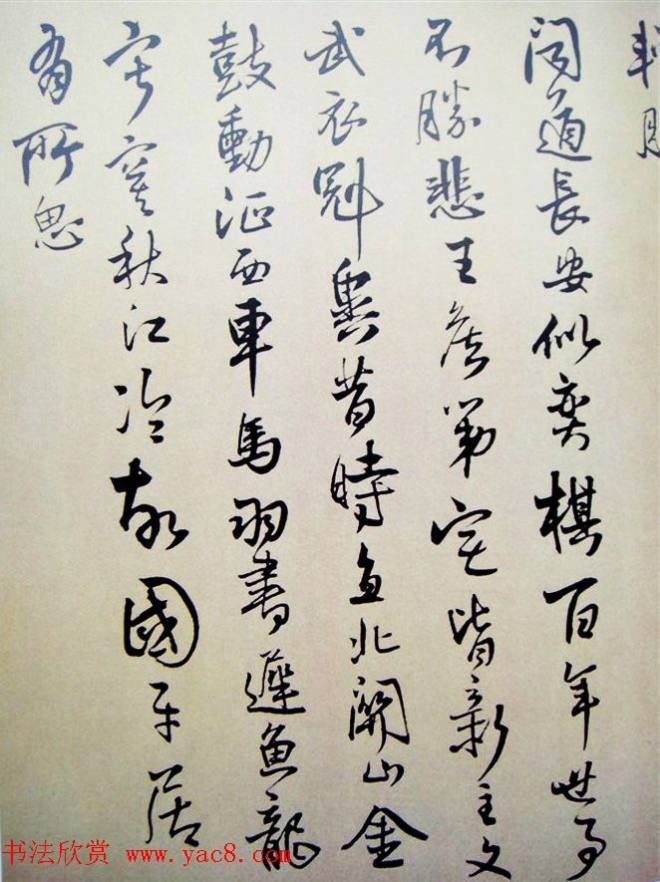 聞道長安似奕棋百年世事
不勝悲王侯第宅皆新主文
武衣冠異昔時直北關山金
鼓動征西車馬羽書遲魚龍
寂寞秋江冷故國平居
有所思
书法欣赏 www.yac8.com